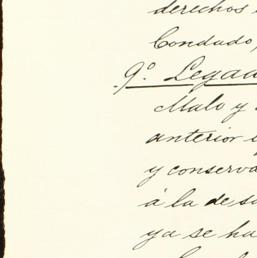 derechos
Condado,
9º. Legad
Malo y
anterior
y conserva
á la de su
ya se ha